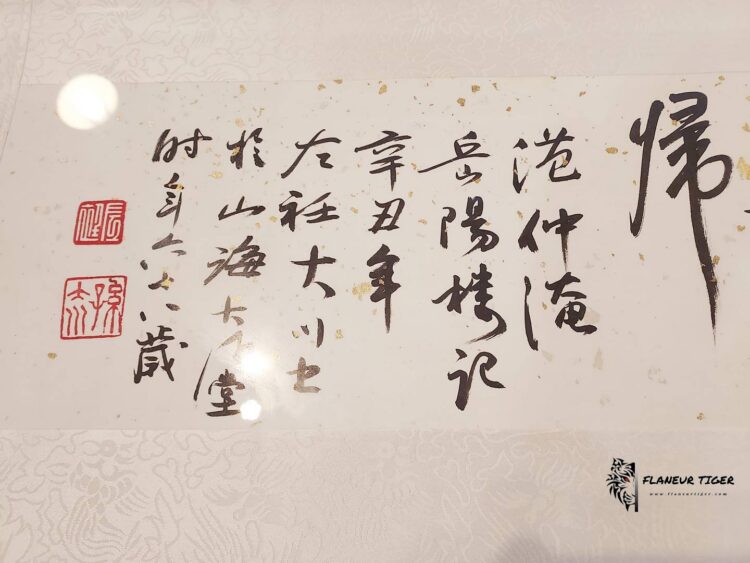 帰
范仲淹
岳陽樓記
辛丑年
大川书
於山海大堂
时年六十八歲
FLANEUR TIGER
www.flaneurtiger.com